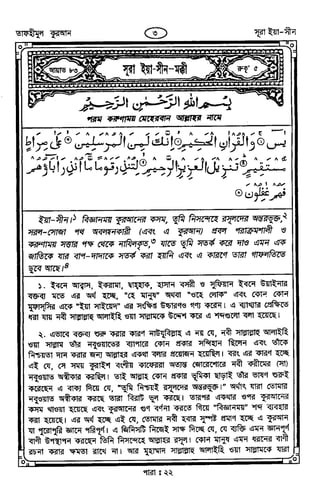 তাফহীমুল কুরআন ৩ সূরা ইয়া-সীন
আয়াত ৮৩ সূরা ইয়া-সীন-মক্কী রুকূ' ৫
بِسْمِ اللهِ الرَّحْمٰنِ الرَّحِيْمِ
পরম করুণাময় মেহেরবান আল্লাহর নামে
يٰسٓ ۞ وَالْقُرْاٰنِ الْحَكِيْمِ ۞ اِنَّكَ لَمِنَ الْمُرْسَلِيْنَ ۞ عَلٰى صِرَاطٍ
مُّسْتَقِيْمٍ ۞ تَنْزِيْلَ الْعَزِيْزِ الرَّحِيْمِ ۞ لِتُنْذِرَ قَوْمًا مَّآ اُنْذِرَ اٰبَآؤُهُمْ
فَهُمْ غٰفِلُوْنَ ۞
ইয়া-সীন।১ বিজ্ঞানময় কুরআনের কসম, তুমি নিসন্দেহে রসূলদের অন্তরভুক্ত,২
সরল-সোজা পথ অবলম্বনকারী (এবং এ কুরআন) প্রবল পরাক্রমশালী ও
করুণাময় সত্তার পক্ষ থেকে নাযিলকৃত,৩ যাতে তুমি সতর্ক করে দাও এমন এক
জাতিকে যার বাপ-দাদাকে সতর্ক করা হয়নি এবং এ কারণে তারা গাফলতিতে
ডুবে আছে।৪
১. ইবনে আব্বাস, ইকরামা, যাহ্হাক, হাসান বসরী ও সুফিয়ান ইবনে উয়াইনার
বক্তব্য মতে এর অর্থ হচ্ছে, "হে মানুষ" অথবা "ওহে লোক" এবং কোন কোন
মুফাসসির একে "ইয়া সাইয়েদ" এর সংক্ষিপ্ত উচ্চারণও গণ্য করেন। এ ব্যাখ্যার প্রেক্ষিতে
ধরা যায় নবী সাল্লাল্লাহু আলাইহি ওয়া সাল্লামকে উদ্দেশ করে এ শব্দগুলো বলা হয়েছে।
২. এভাবে বক্তব্য শুরু করার কারণ নাউযুবিল্লাহ এ নয় যে, নবী সাল্লাল্লাহু আলাইহি
ওয়া সাল্লাম তাঁর নবুওয়াতের ব্যাপারে কোন প্রকার সন্দিহান ছিলেন এবং তাঁকে
নিশ্চয়তা দান করার জন্য আল্লাহর একথা বলার প্রয়োজন হয়েছিল। বরং এর কারণ হচ্ছে
এই যে, সে সময় কুরাইশ বংশীয় কাফেররা অত্যন্ত জোরেশোরে নবী করীমের (সা)
নবুওয়াত অস্বীকার করছিল। তাই আল্লাহ কোন প্রকার ভূমিকা ছাড়াই তাঁর ভাষণ শুরুই
করেছেন এ বাক্য দিয়ে যে, "তুমি নিশ্চয়ই রসূলদের অন্তরভুক্ত।" অর্থাৎ যারা তোমার
নবুওয়াত অস্বীকার করছে তারা বিরাট ভুল করছে। তারপর একথার ওপর কুরআনের
কসম খাওয়া হয়েছে এবং কুরআনের গুণ বর্ণনা করতে গিয়ে "বিজ্ঞানময়" শব্দ ব্যবহার
করা হয়েছে। এর অর্থ হচ্ছে এই যে, তোমার নবী হবার সুস্পষ্ট প্রমাণ হচ্ছে এ কুরআন
যা পুরোপুরি জ্ঞানে পরিপূর্ণ। এ জিনিসটি নিজেই সাক্ষ দিচ্ছে যে, যে ব্যক্তি এমন জ্ঞানপূর্ণ
বাণী উপস্থাপন করছেন তিনি নিসন্দেহে আল্লাহর রসূল। কোন মানুষ এমন ধরনের বাণী
রচনা করার ক্ষমতা রাখে না। আর মুহাম্মাদ সাল্লাল্লাহু আলাইহি ওয়া সাল্লামকে যারা
পারা : ২২